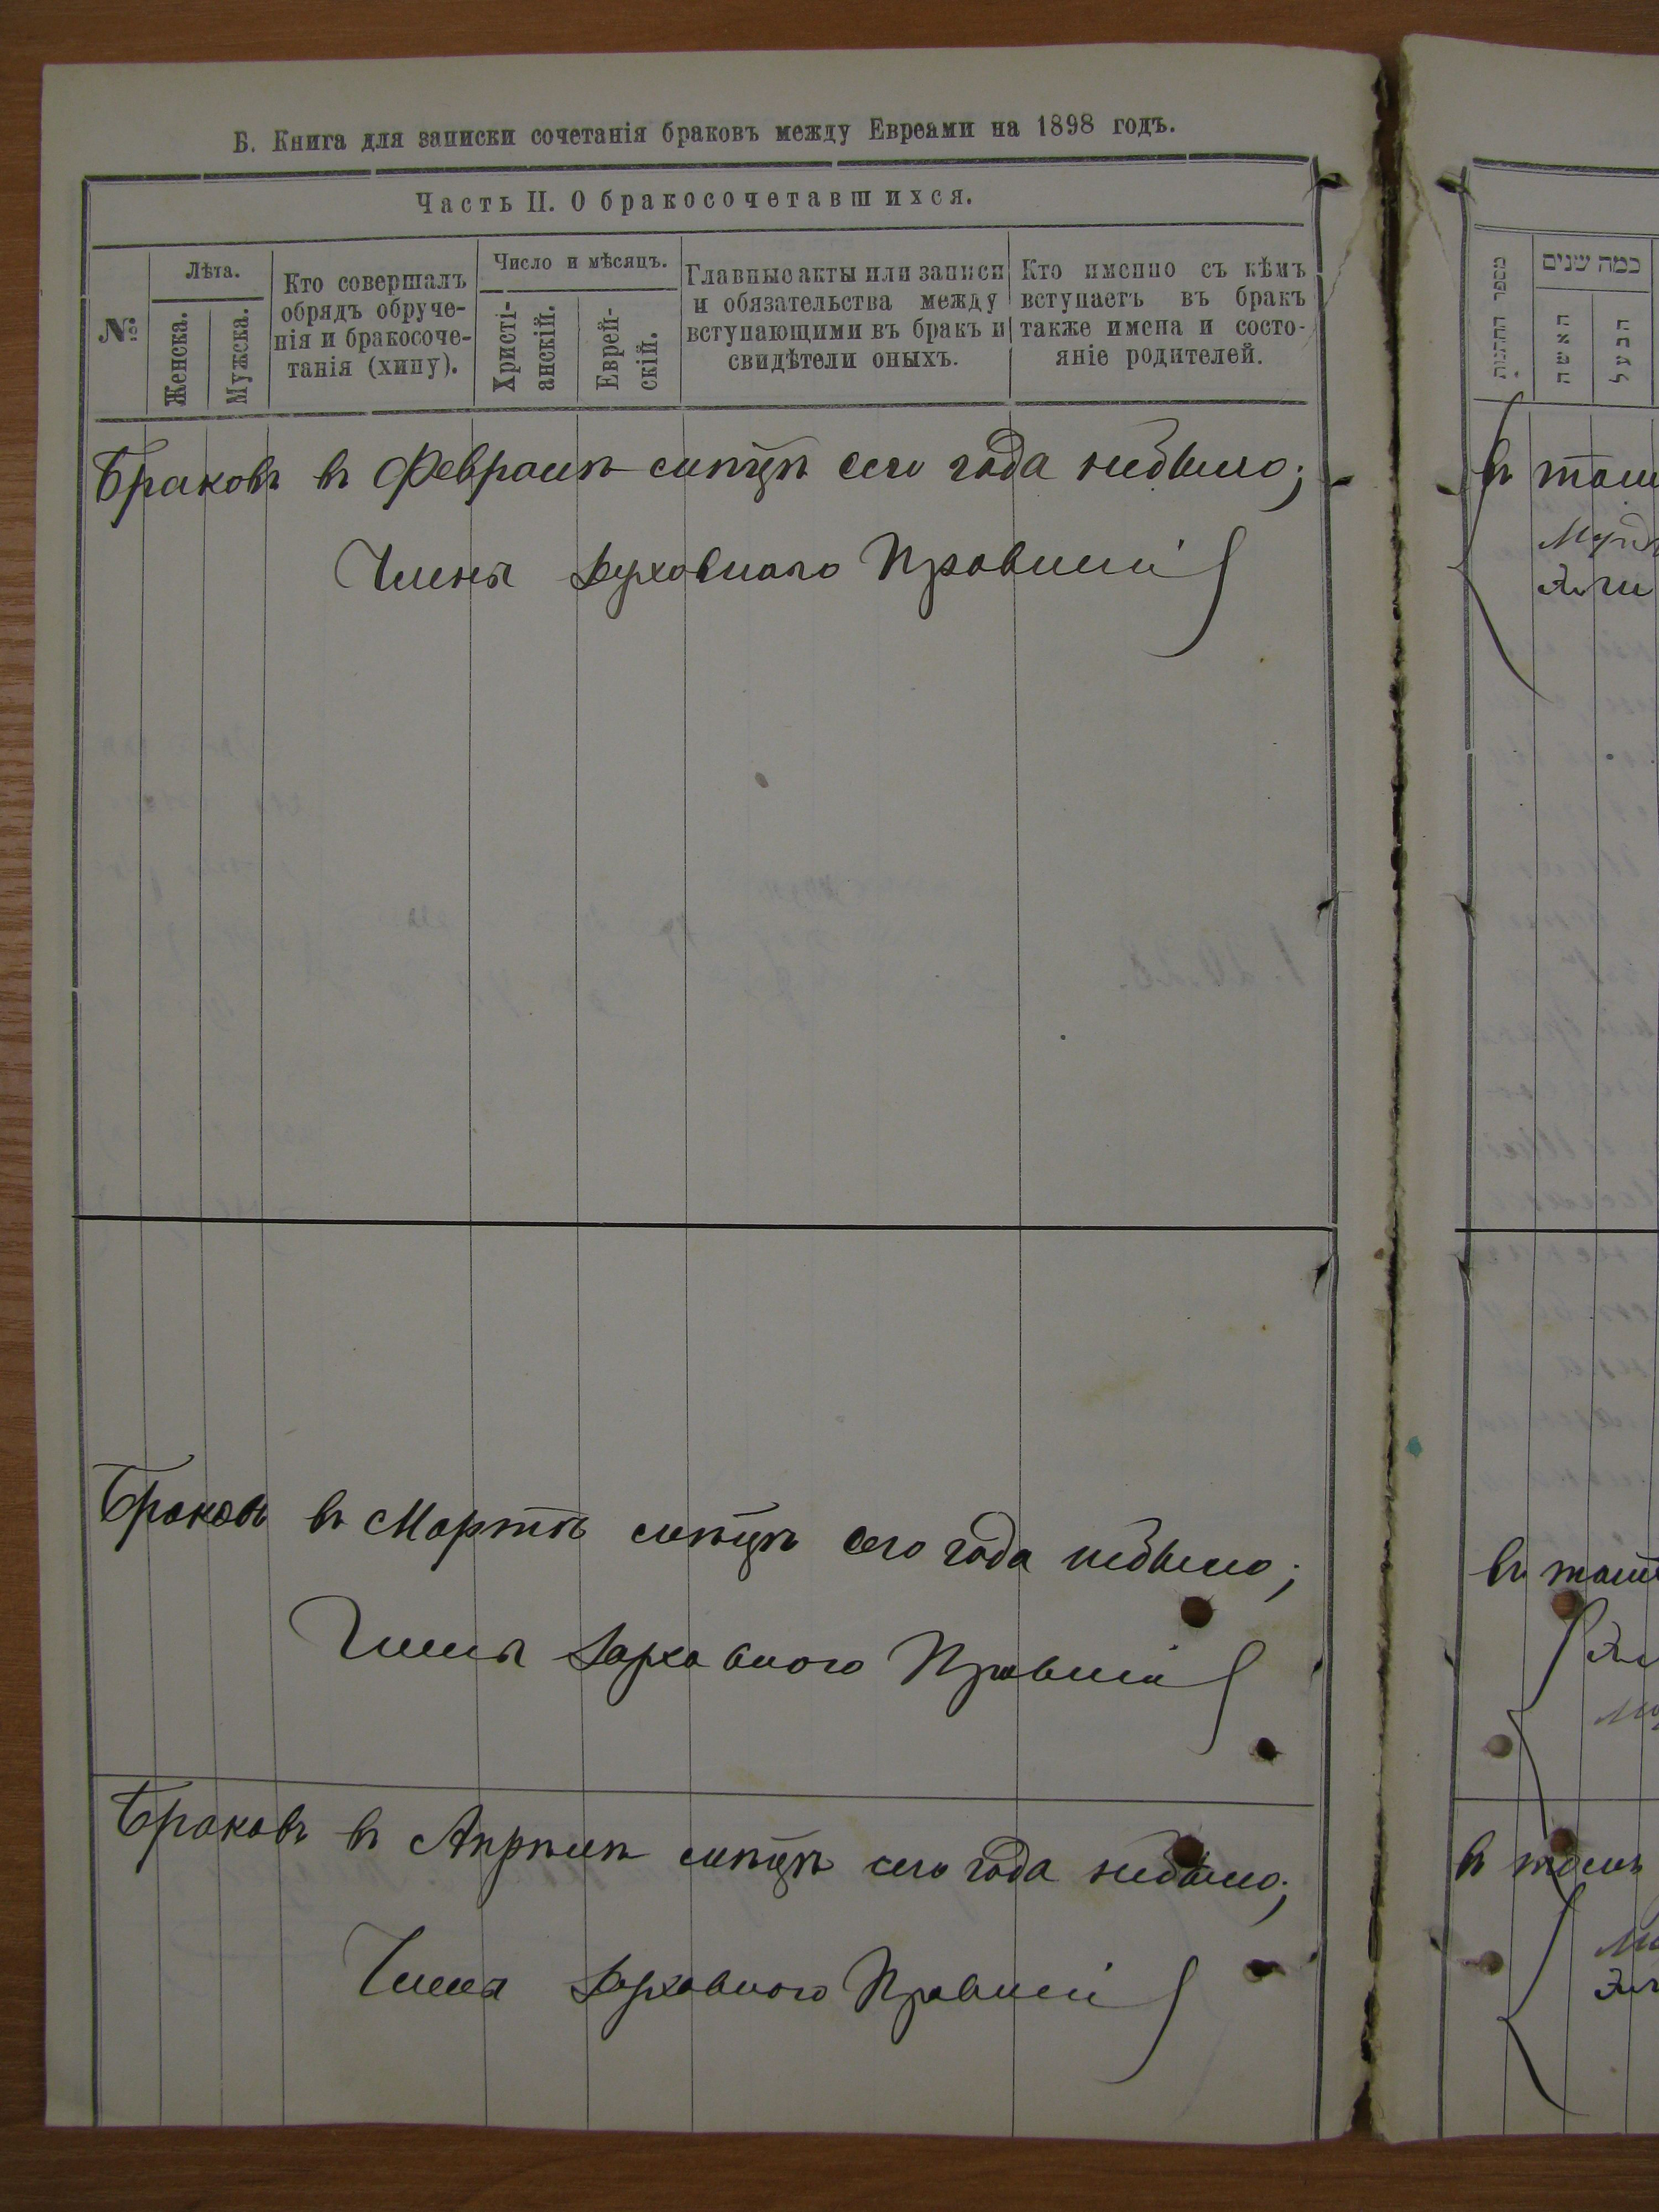 Б. Книга для записки сочетанія браковъ между Евреами на 1898 годъ.
Часть II. О бракосочетавшихся.
№
Лѣта.
Женска.
Мужска.
Кто совершалъ
обрядъ обруче-
нія и бракосоче-
танія (хипу).
Число и мѣсяцъ.
Христі-
анскій.
Еврей-
скій.
Главные акты или записи
и обязательства между
вступающими въ бракъ и
свидѣтели оныхъ.
Кто именно съ кѣмъ
вступаетъ въ бракъ
также имена и состо-
яніе родителей.
Браковъ въ Февралѣ мѣсяцѣ сего года небыло;
Члены Духовнаго Правленія
Браковъ въ Мартѣ мѣсяцѣ сего года небыло;
Члены Духовного Правленія
Браковъ въ Апрѣлѣ мѣсяцѣ сего года небыло;
Члены Духовного Правленія
מספר החתונות
כמה שנים
האשה
הבעל
въ
въ
въ томъ